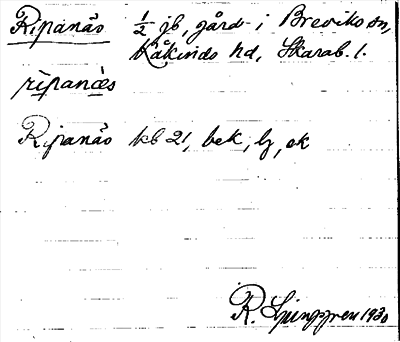 Ripanäs ½ jb, gård i Breviks sn,
Kåkinds hd, Skarab. l.
rìpanæ̀s
Ripanäs kb 21, bek, lj, ek
R. Ljunggren 1930